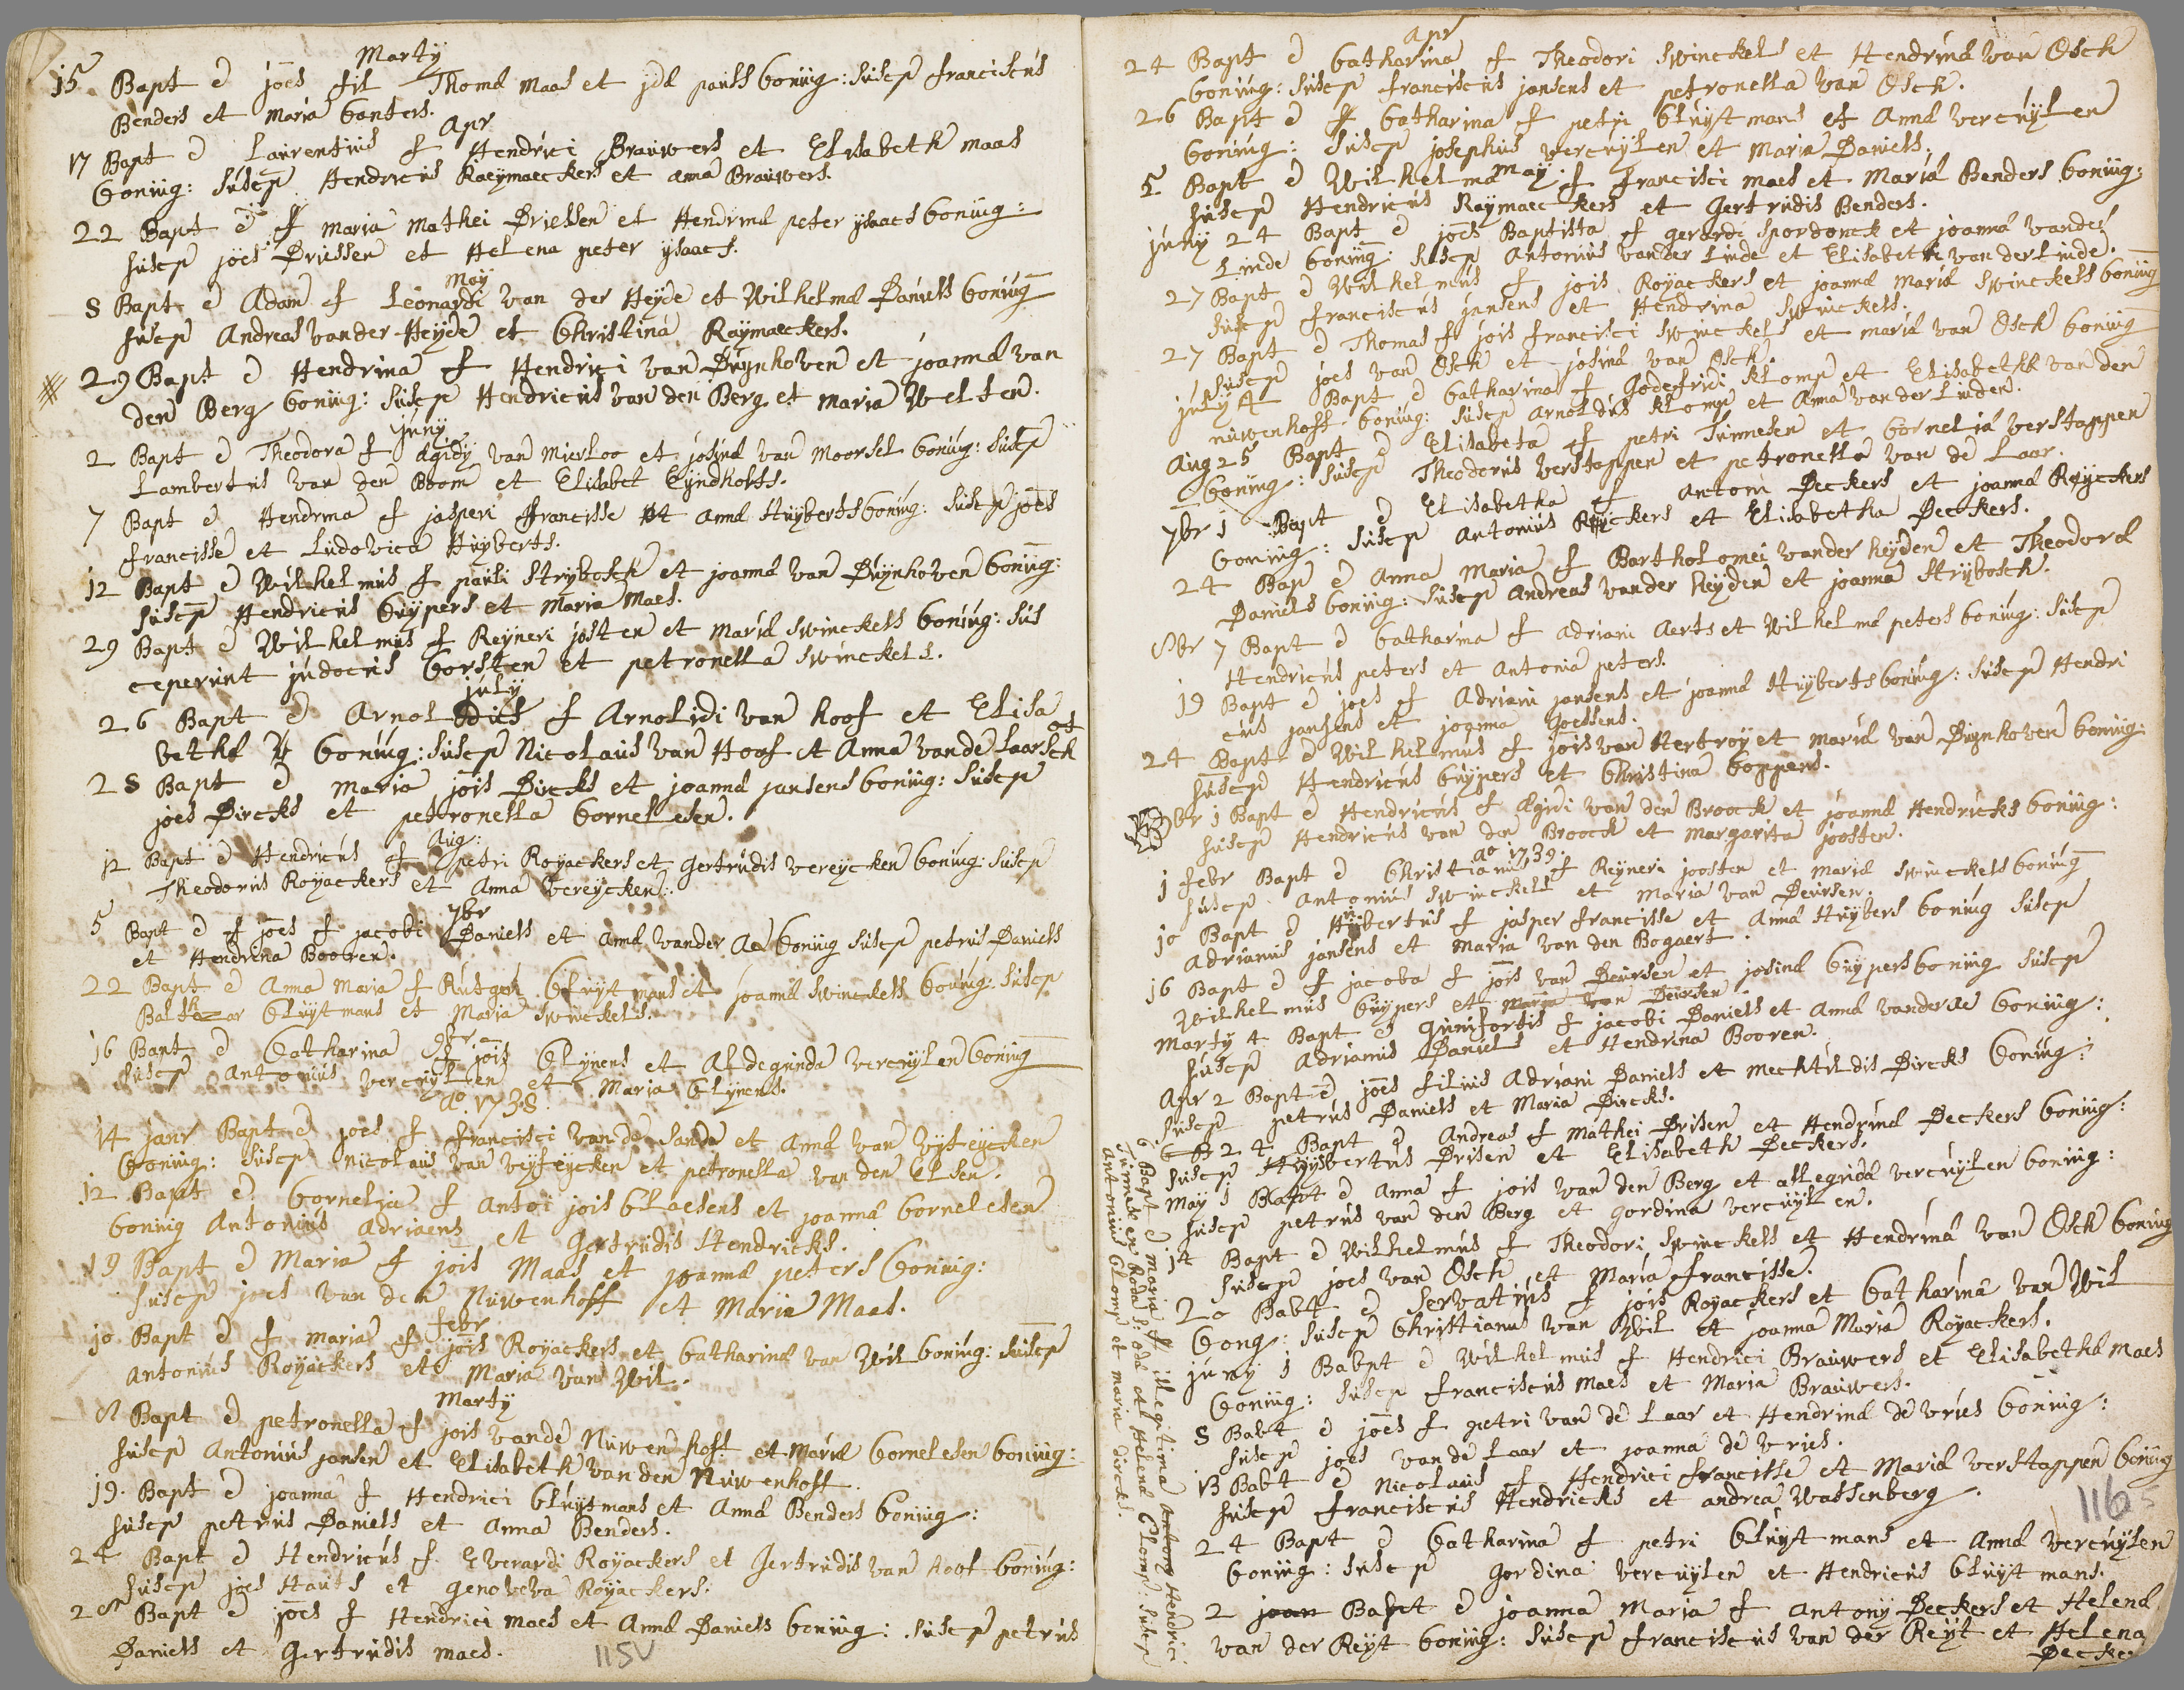 Martÿ
15 Bapt e joes fil Thoma Maas et jda pauls Coniug: Suscep franciscus
Benders et Maria Canters.
Apr
17 Bapt e Laurentius f Hendrici Brauwers et Elisabeth maas
Coniug: Suscep Hendricus Raeÿmaeckers et Anna Brauwers.
22 Bapt e f Maria Mathei Driessen et Hendrina peter ysaacs Coniug:
Suscep joes Driessen et Helena peter ysaacs.
Maÿ
8 Bapt e Adam f Leonardi van der Heÿde et Wilhelma Daniels Coniug
Suscep Andreas vander Heÿde et Christina Raÿmaeckers.
29 Bapt e Hendrina f Hendrici van Duÿnhoven et joanna van
den Berg Coniug: Suscep Hendricus van den Berg et Maria Welten.
junÿ
2 Bapt e Theodora f Ægidÿ van Mierloo et josina van Moorsel Coniug: Suscep
Lambertus van den Boom et Elisabet Eÿndhofts.
7 Bapt e Hendrina f jasperi francisse et Anna Huÿberts Coniug: Suscep joes
francisse et Ludovica Huÿberts.
12 Bapt e Wilhelmus f pauli Strÿbosch et joanna van Duÿnhoven Coniug:
Suscep Hendricus Cuÿpers et Maria Maes.
29 Bapt e Wilhelmus f Reÿneri josten et Maria Swinckels Coniug: Sus
ceperunt judocus Corsten et petronella Swinckels.
julÿ
26 Bapt e Arnoldus f Arnoldi van hoof et Elisa
betha Coniug: Suscep Nicolaus van Hoof et Anna van de Laarsch
28 Bapt e Maria jois Dircks et joanna jansens Coniug: Suscep
joes Dircks et petronella Cornelesen.
Aug:
12 Bapt e Hendricus f petri Roÿackers et Gertrudis Vereÿcken Coniug: Suscep
Theodorus Roÿackers et Anna Vereÿcken.
7br
5 Bapt e f joes f jacobi Daniels et Anna vander Aa Coniug Suscep petrus Daniels
et Hendrina Booren.
22 Bapt e Anna Maria f Rutgeri Cluÿtmans et joanna Swinckels Coniug: Suscep
Balthazar Cluÿtmans et Maria Swinckels.
16 Bapt e Catharina f jois Clÿnens et Aldegunda Vercuÿlen Coniug
Suscep Antonius Vercuÿlen et Maria Clÿnens.
Aº. 1738.
14 janr Bapt e joes f francisci van de Sande et Anna van Vÿfeÿcken
Coniug: Suscep Nicolaus van Vÿfeÿcken et petronella van den Elsen.
12 Bapt e Cornelia f Antoi jois Claesens et joanna Cornelesen
Coniug Antonius Adriaens et Gertrudis Hendricks.
19 Bapt e Maria f jois Maas et joanna peters Coniug:
Suscep joes van den Nuwenhoff et Maria Maes.
febr
10 Bapt e f Maria f jois Roÿackers et Catharina van Wil Coniug: Suscep
Antonius Roÿackers et Maria van Wil.
Martÿ
8 Bapt e petronella f jois vande Nuwenhoff et Maria Cornelesen Coniug:
Suscep Antonius jansen et Elisabeth van den Nuwenhoff.
19. Bapt e joanna f Hendrici Cluÿtmans et Anna Benders Coniug:
Suscep petrus Daniels et Anna Benders.
24 Bapt e Hendricus f Everardi Roÿackers et Gertrudis van Hoof Coniug:
Suscep joes Hauts et Genoveva Roÿackers.
28 Bapt e joes f Hendrici Maes et Anna Daniels Coniug: Suscep petrus
Daniels et Gertrudis Maes.
115V
Apr
24 Bapt e Catharina f Theodori Swinckels et Hendrina van Osch
Coniug: Suscep franciscus jansens et petronella van Osch.
26 Bapt e Catharina f petri Cluÿtmans et Anna Vercuÿlen
Coniug: Suscep josephus Vercuÿlen et Maria Daniels.
Maÿ.
5 Bapt e Wilhelma f francisci Maes et Maria Benders Coniug:
Suscep Hendricus Raÿmaeckers et Gertrudis Benders.
junÿ 24 Bapt e joes Baptista f gerardi Spordonck et joanna vander
Linde Coniug: Suscep Antonius vander Linde et Elisabeth van der Linde.
27 Bapt e Wilhelmus f jois Roÿackers et joanna Maria Swinckels Coniug
Suscep franciscus jansens et Hendrina Swinckels.
27 Bapt e Thomas f jois francisci Swinckels et Maria van Osch Coniug
Suscep joes van Osch et josina van Osch.
julÿ 4 Bapt e Catharina f Godefridi Klomp et Elisabetha van den
Nuwenhoff Coniug: Suscep Arnoldus Klomp et Anna van der Linden.
Aug 25 Bapt e Elisabeta f petri Tunnesen et Cornelia Verstappen
Coniug: Suscep Theodorus Verstappen et petronella van de Laar.
7br 1 Bapt e Elisabetha f Antoni Deckers et joanna Reÿckers
Coniug: Suscep Antonius Reÿckers et Elisabetha Deckers.
24 Bap e Anna Maria f Bartholomei vander heÿden et Theodora
Daniels Coniug: Suscep Andreas vander heÿden et joanna Strÿbosch.
8br 7 Bapt e Catharina f Adriani Aerts et Wilhelma peters Coniug: Suscep
Hendricus peters et Antonia peters.
19 Bapt e joes f Adriani jansens et joanna Huÿberts Coniug: Suscep Hendri
cus jansens et joanna Goessens.
24 Bapt e Wilhelmus f jois van Hertroÿ et Maria van Duÿnhoven Coniug:
Suscep Hendricus Cuÿpers et Christina Coppens.
br 1 Bapt e Hendricus f Ægidi van den Broock et joanna Hendricks Coniug:
Suscep Hendricus van den Broock et Margarita joosten.
Aº 1739.
1 febr Bapt e Christianus f Reÿneri joosten et Maria Swinckels Coniug
Suscep Antonius Swinckels et Maria van Deursen.
10 Bapt e Hubertus f jasper francisse et Anna Huÿbers Coniug Suscep
Adrianus jansens et Maria van den Bogaert.
16 Bapt e f jacoba f jois van Deursen et josina Cuÿpers Coniug Suscep
Wilhelmus Cuÿpers et Maria van Deursen
Martÿ 4 Bapt e Gumfortis f jacobi Daniels et Anna vander Ae Coniug:
Suscep Adrianus Daniels et Hendrina Booren.
Apr 2 Bapt e joes filius Adriani Daniels et Mechtildis Dircks Coniug:
Suscep petrus Daniels et Maria Dircks.
24 Bapt e Andreas f Mathei Drisen et Hendrina Deckers Coniug:
Suscep Huÿbertus Drisen et Elisabeth Deckers.
Maÿ 1 Bapt e Anna f jois van den Berg et allegrida Vercuÿlen Coniug:
Suscep petrus van den Berg et Gordina Vercuÿlen.
14 Bapt e Wilhelmus f Theodori Swinckels et Hendrina van Osch Coniug
Suscep joes van Osch et Maria francisse.
20 Babt e Servatius f jois Roÿackers et Catharina van Wil
Cong: Suscep Christianus van Wil et joanna Maria Roÿackers.
junÿ 1 Babpt e Wilhelmus f Hendrici Brauwers et Elisabetha Maes
Coniug: Suscep franciscus Maes et Maria Brauwers.
8 Babt e joes f petri van de Laar et Hendrina de Vries Coniug:
Suscep joes van de Laar et joanna de Vries.
13 Babt e Nicolaus f Hendrici francisse et Maria Verstappen Coniug
Suscep franciscus Hendricks et andrea Wassenberg.
24 Bapt e Catharina f petri Cluÿtmans et Anna Vercuÿlen
Coniug: Suscep Gordina Vercuÿlen et Hendricus Cluÿtmans.
2 joan Bapt e joanna Maria f Antonÿ Deckers et Helena
van der Reÿt Coniug: Suscep franciscus van der Reÿt et Helena
Decke
116
6 Bapt e Maria f illegitima Antonÿ Hendrici
et Helena Clomp Suscep
Antonius Clomp et Maria dircks.